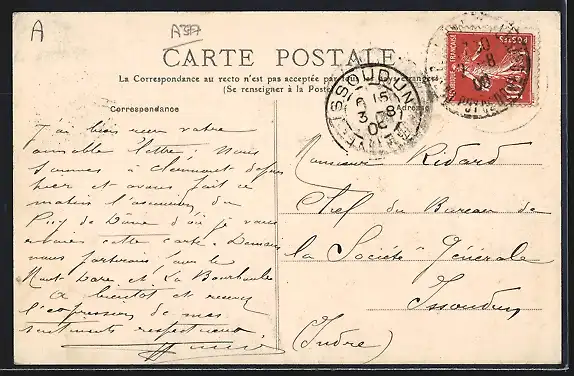 A
A377
CARTE POSTALE
La Correspondance au recto n'est pas acceptée par tous les pays étrangers
(Se renseigner à la Poste)
Correspondance
Adresse
POSTES
REPUBLIQUE FRANÇAISE
10
ISSOUDUN
6 15
3 -8
J'ai bien reçu votre
aimable lettre; Nous
sommes à Clermont depuis
hier et avons fait ce
matin l'ascension du
Puy de Dôme d'où je vous
écris cette carte. Demain
nous partirons pour le
Mont Dore et La Bourboule
A bientôt et recevez
l'expression de mes
sentiments respectueux
Monsieur Ridard
Chef du Bureau de
la Société Générale
Issoudun
(Indre)